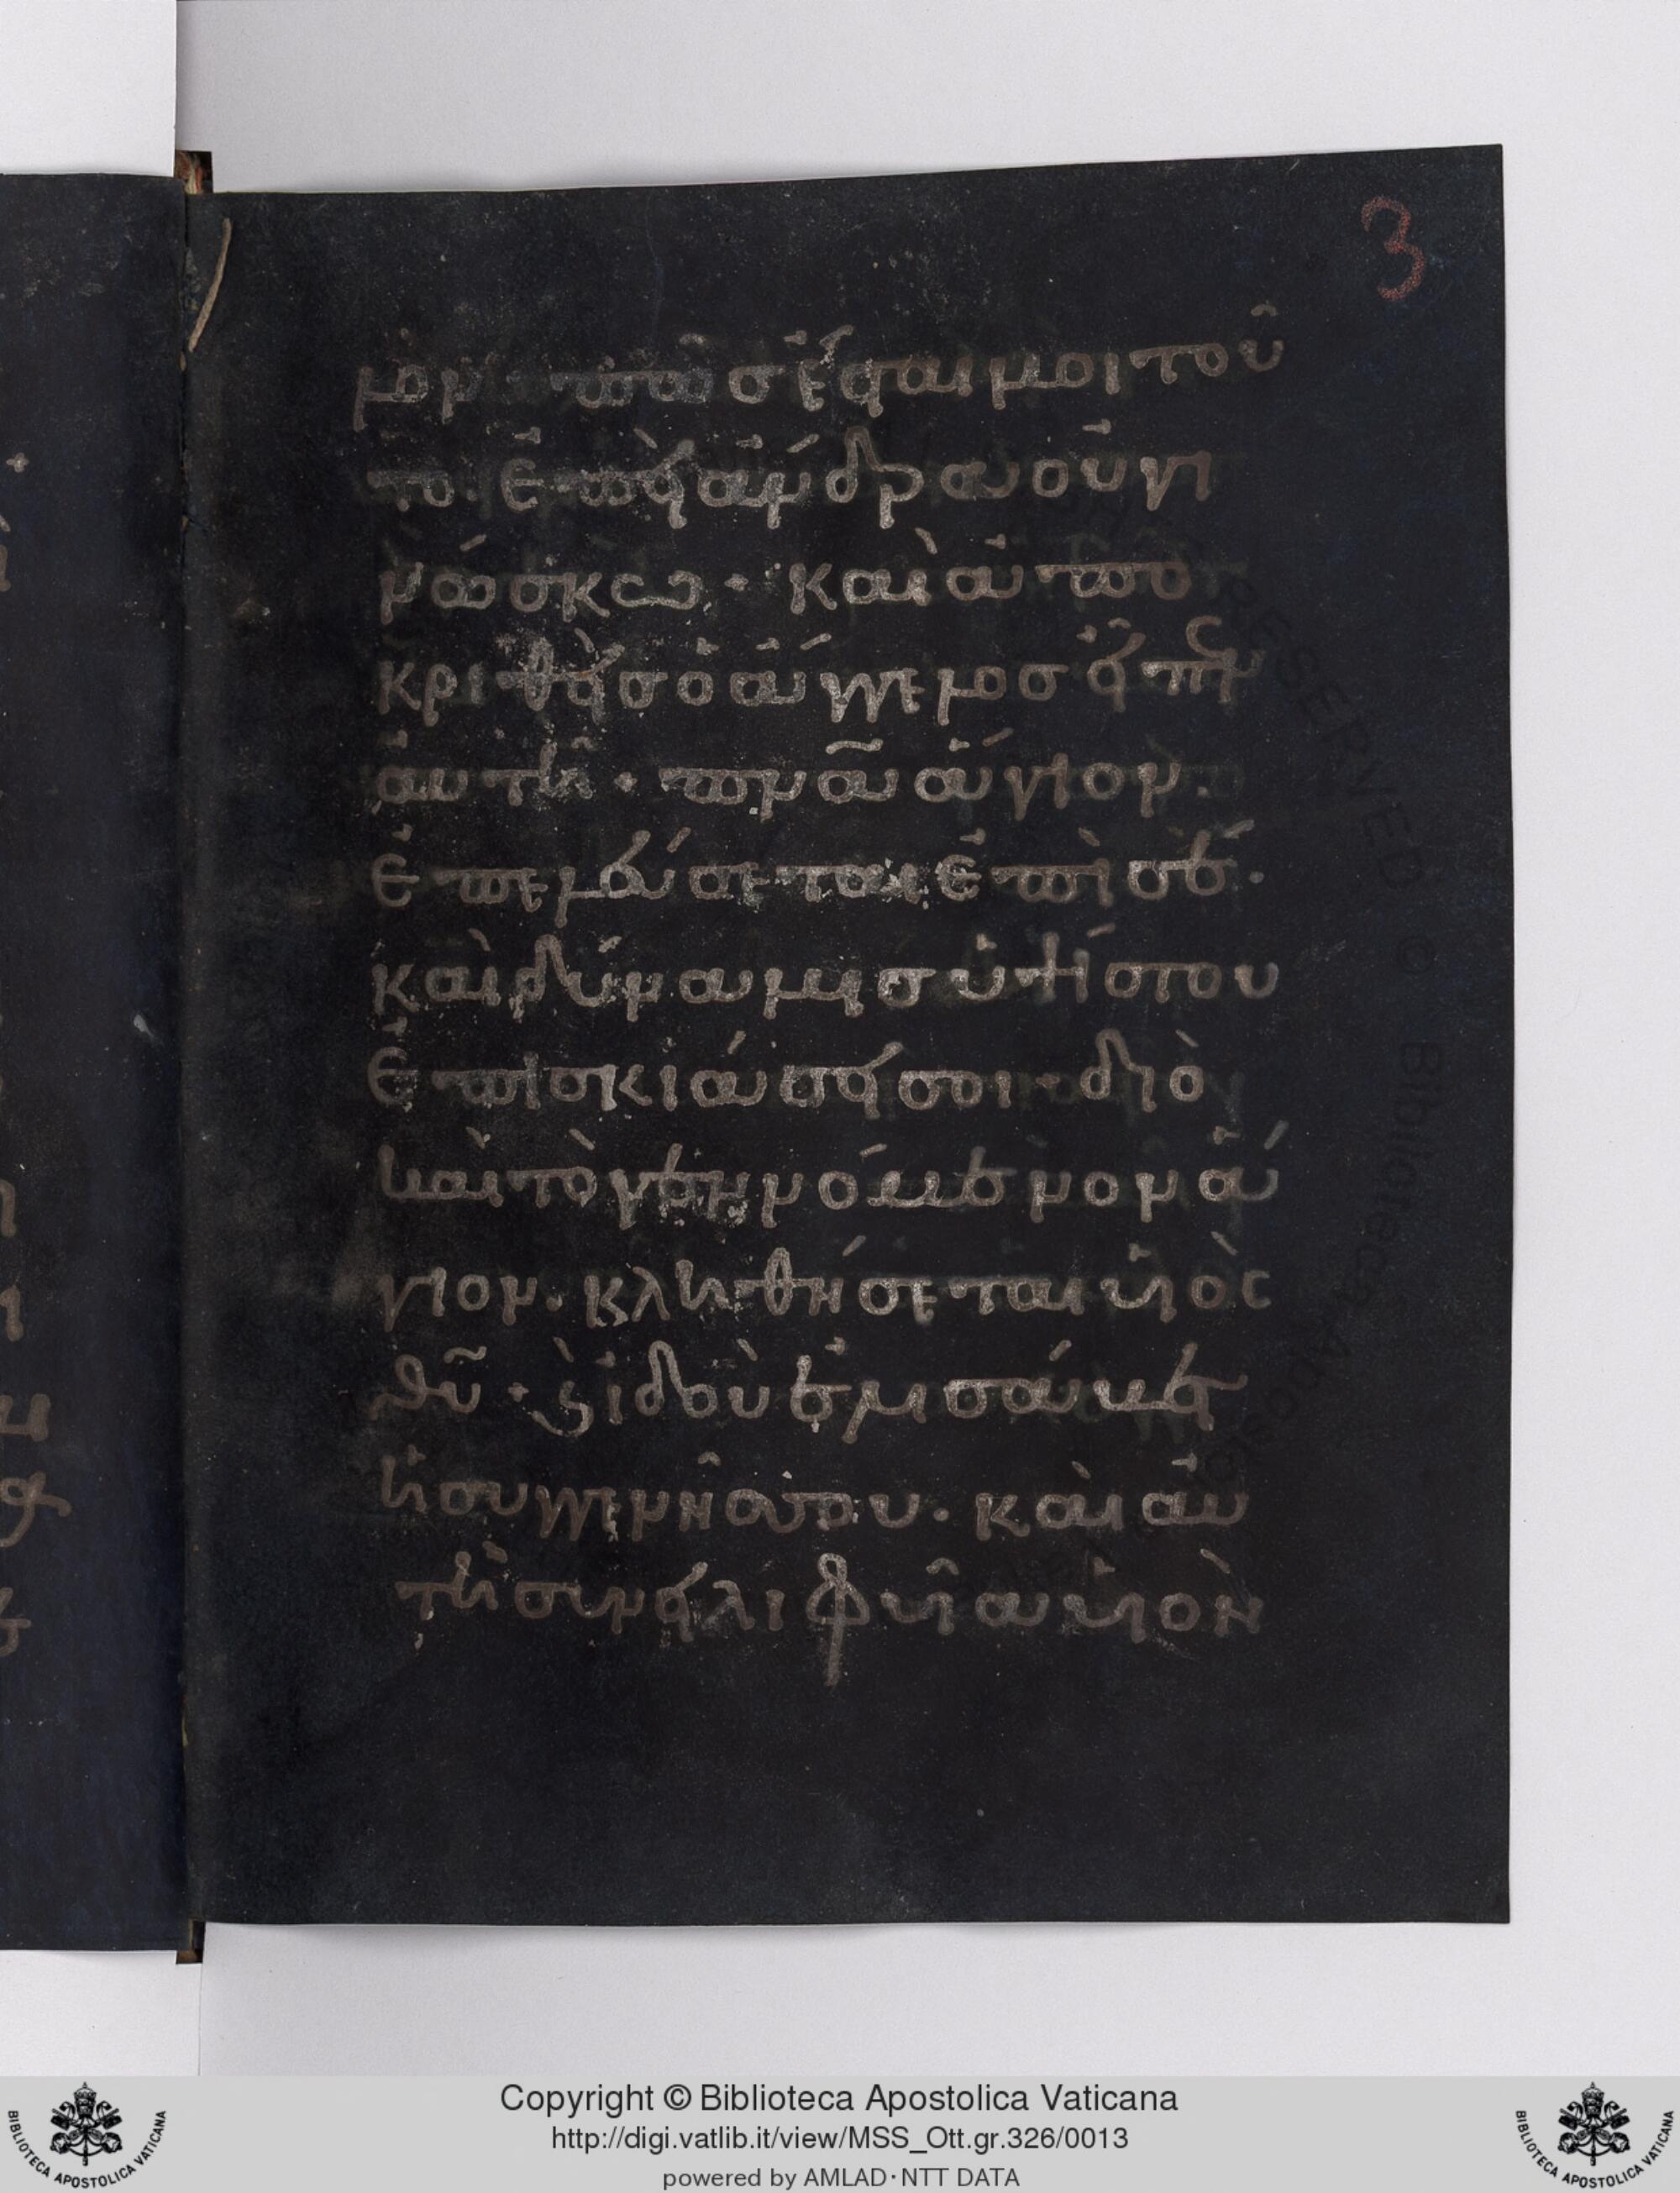 3
λον· πῶσ ἔσται μοι τοῦ
το. ἐπεὶ ἄνδρα οὐ γι
νώσκω· καὶ ἀπο
κριθεὶσ ὁ ἄγγελοσ εἶπεν
αὐτῆ· πνᾶ ἅγιον.
ἐπελεύσεται ἐπὶ σέ.
καὶ δύναμισ ὑψίστου
ἐπισκιάσει σοι· διὸ
καὶ τὸ γεννόμενον ἅ
γιον. κληθήσεται υἱὸς
θῦ· ϗ ἰδοὺ ἐλισάβετ
ἡ συγγενησου. καὶ αὐ
τὴ συνείλιφυῖα υἱὸν
Copyright © Biblioteca Apostolica Vaticana
http://digi.vatlib.it/view/MSS_Ott.gr.326/0013
powered by AMLAD·NTT DATA
BIBLIOTECA APOSTOLICA VATICANA
BIBLIOTECA APOSTOLICA VATICANA